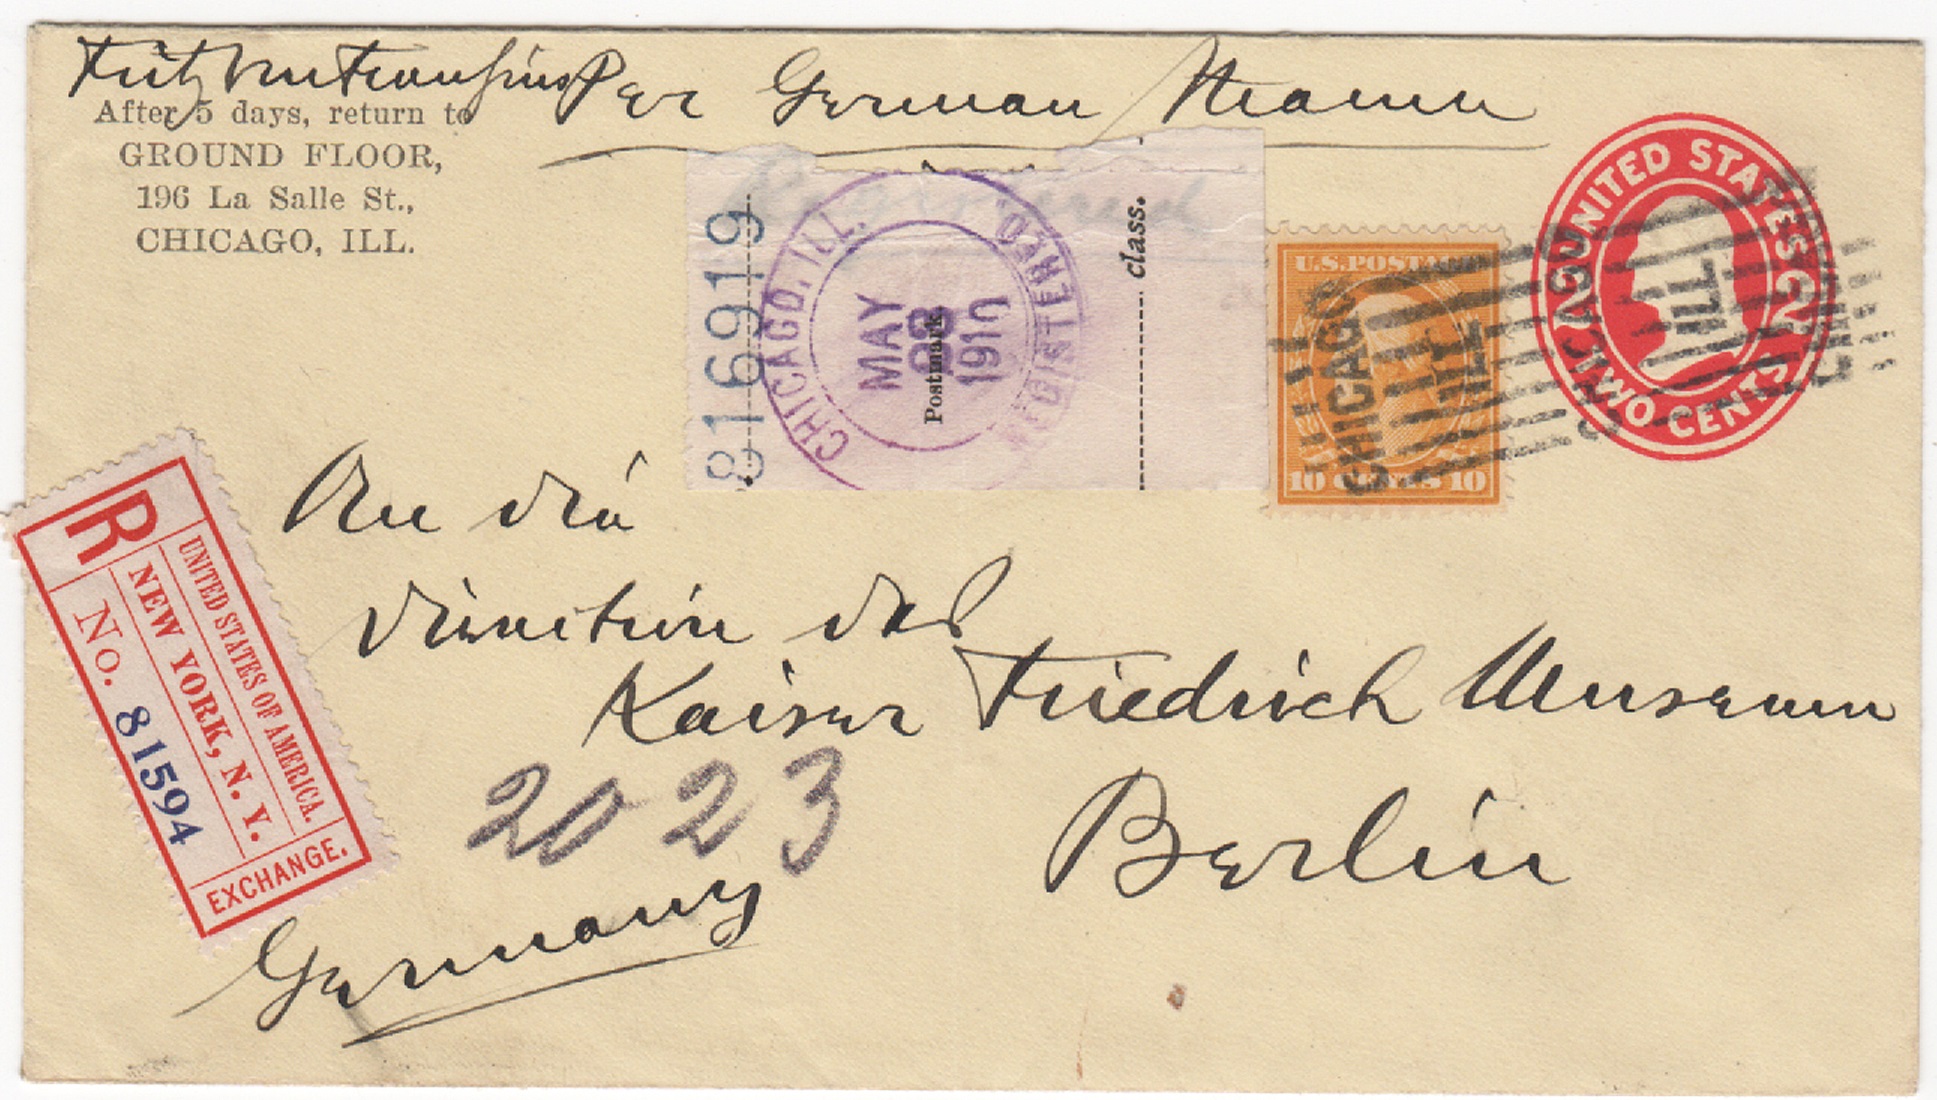 Fritz von Frantzius Per German Steamer
After 5 days, return to
GROUND FLOOR,
196 La Salle St.,
CHICAGO, ILL.
Registered
816919
CHICAGO, ILL.
REGISTERED
MAY
28
1910
Postmark
class.
U.S. POSTAGE
10 CENTS 10
CHICAGO
ILL
UNITED STATES
TWO CENTS
CHICAGO
ILL
R
UNITED STATES OF AMERICA.
NEW YORK, N. Y.
No. 81594
EXCHANGE.
An die
Direction des
Kaiser Friedrich Museum
2023
Berlin
Germany